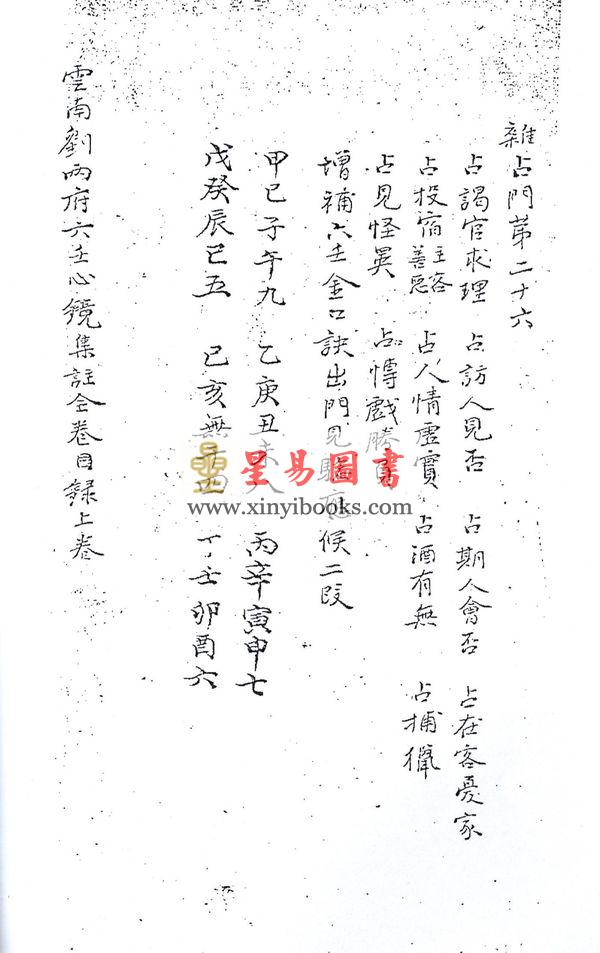 雜占門第二十六
占謁官求理 占訪人見否 占期人會否 占在客憂家
占投宿主客善惡 占人情虛實 占酒有無 占捕獵
占見怪異 占愽戲勝負
增補六壬金口訣出門見驗應候二段
甲己子午九 乙庚丑未八 丙辛寅申七
戊癸辰巳五 巳亥無干四 丁壬卯酉六
雲南劉丙府六壬心鏡集註全卷目錄上卷
星易圖書
www.xinyibooks.com